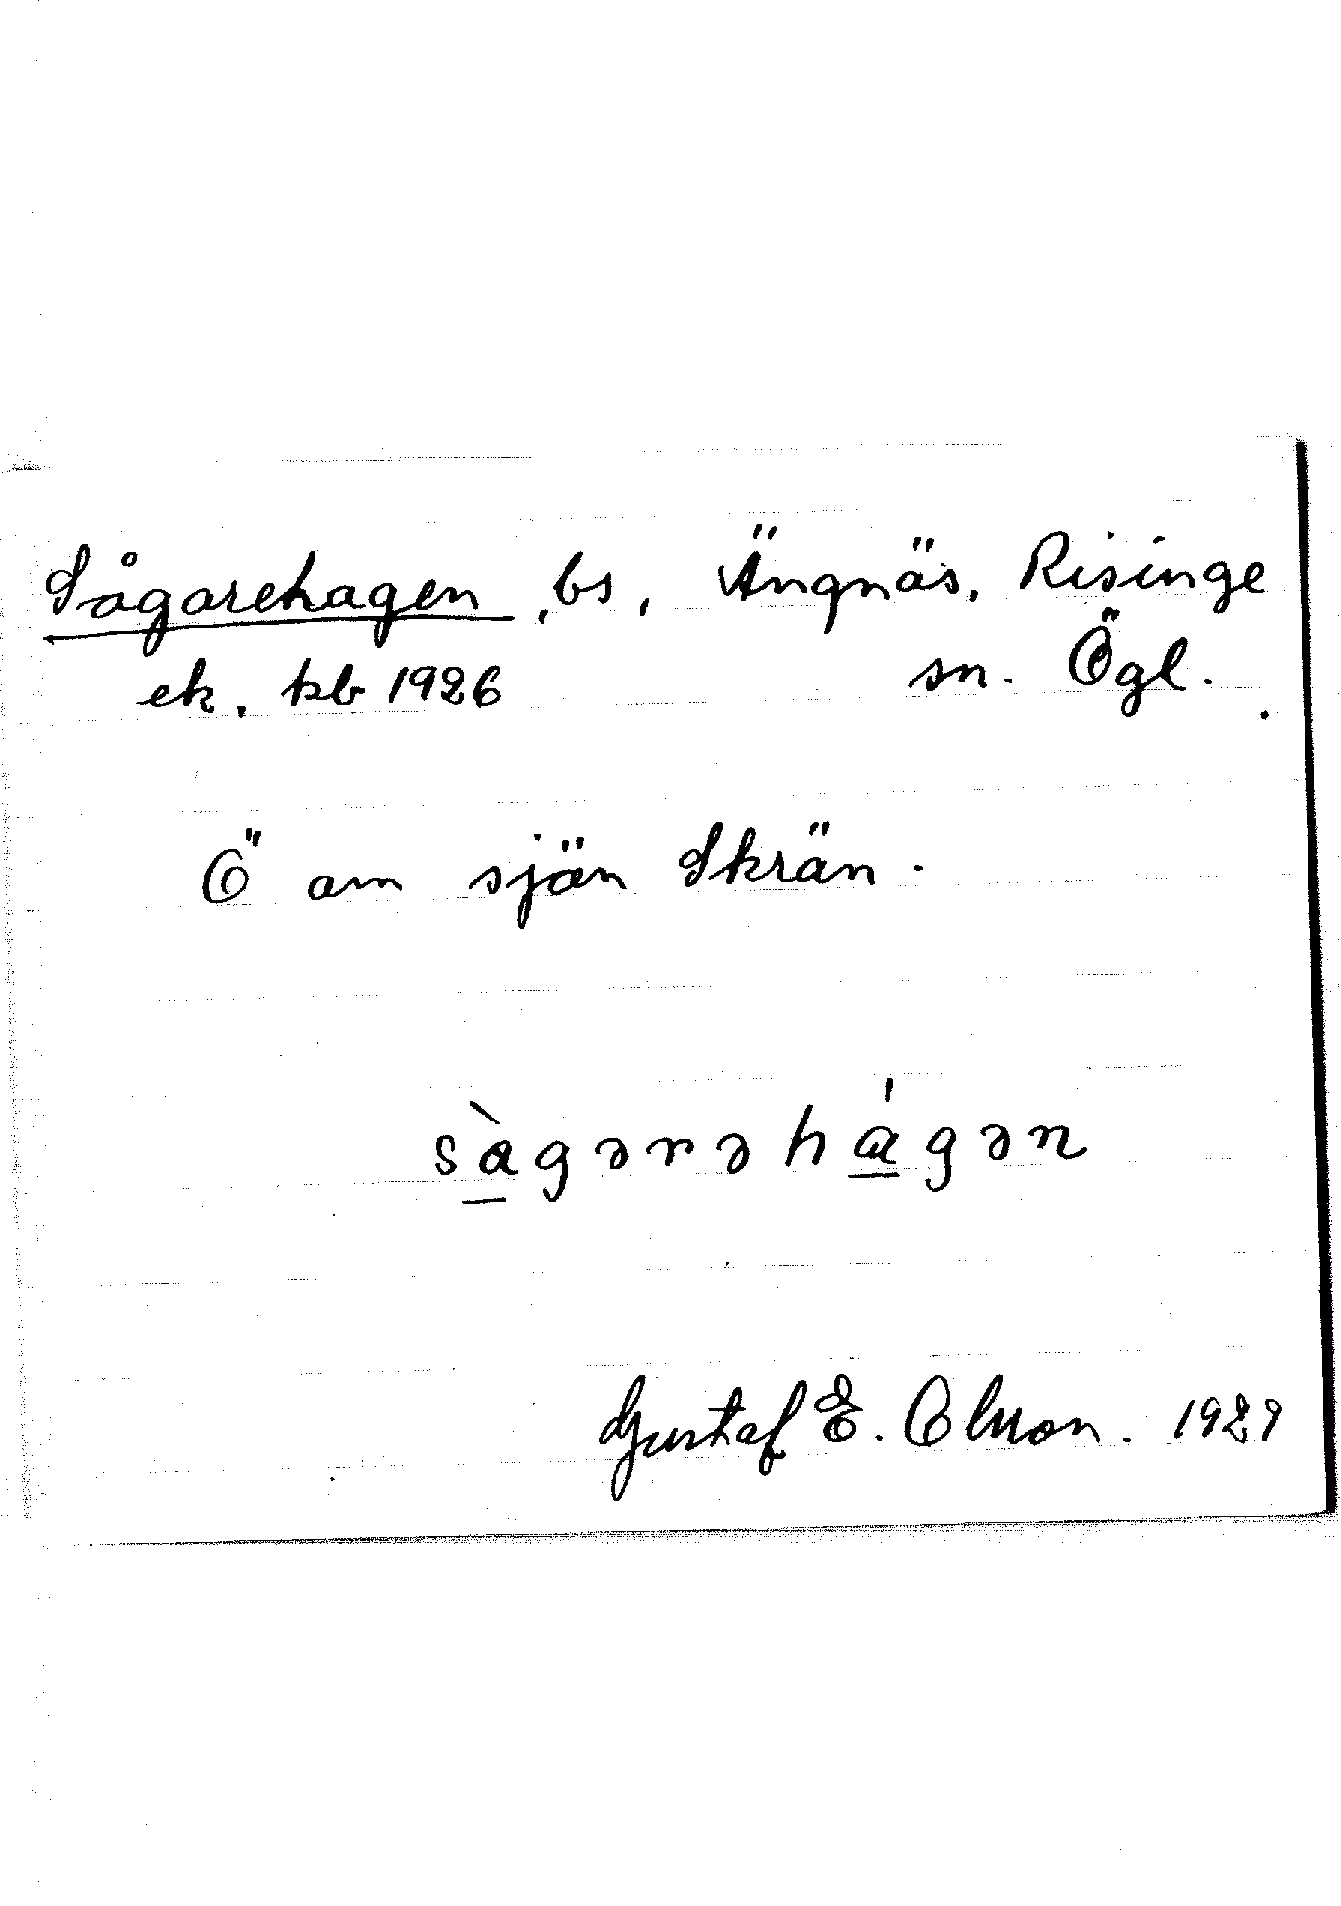 Sågarehagen, bs, Ängnäs, Risinge
ek. kb 1926 sn. Ögl.
Ö om sjön Skrän.
sàgərəhágən
Gustaf E. Olsson. 1929